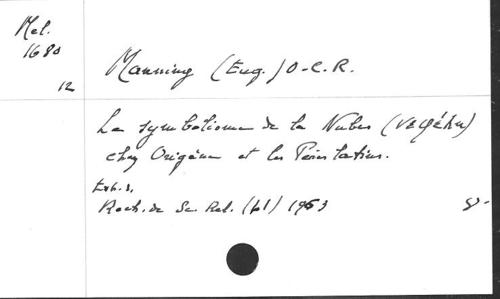 Mel.
1680
12
Manning (Eug.) O.C.R.
Le symbolisme de la Nubes (νεφέλη)
chez Origène et les Pères latins.
Extr.
Rech. de Sc. Rel. (51) 1963
8°